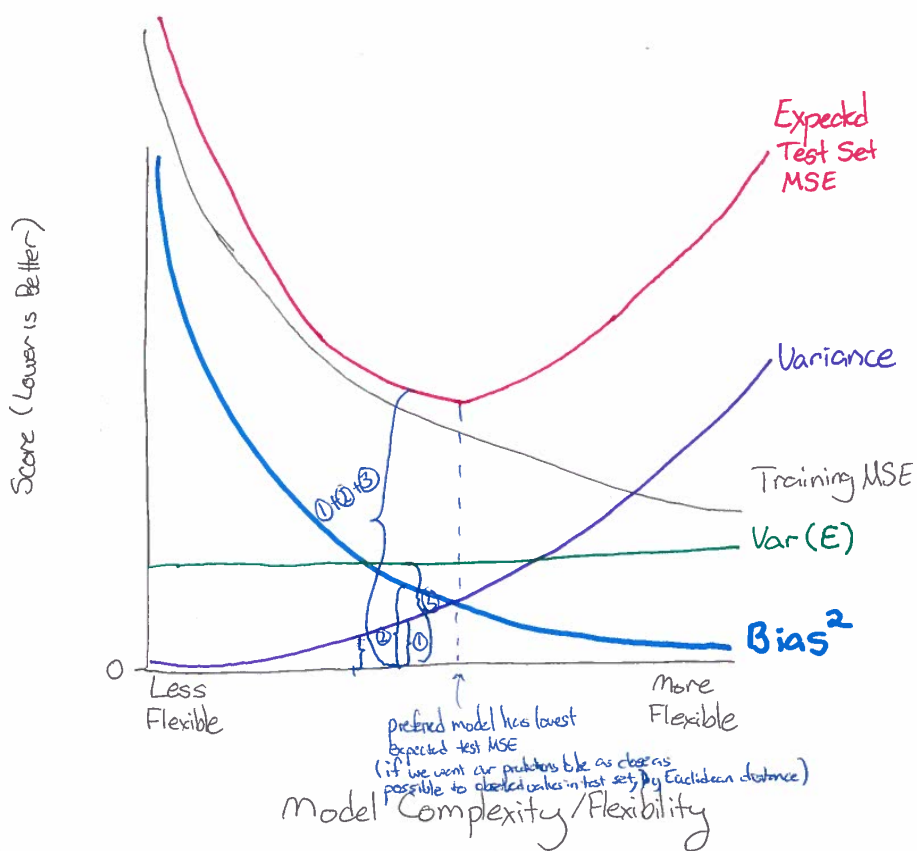 Expected
Test Set
MSE
Score (Lower is Better)
Variance
①+②+③
Training MSE
Var(E)
③
②
①
Bias²
0
Less
Flexible
More
Flexible
preferred model has lowest
expected test MSE
(if we want our predictions to be as close as
possible to observed values in test set, by Euclidean distance)
Model Complexity/Flexibility